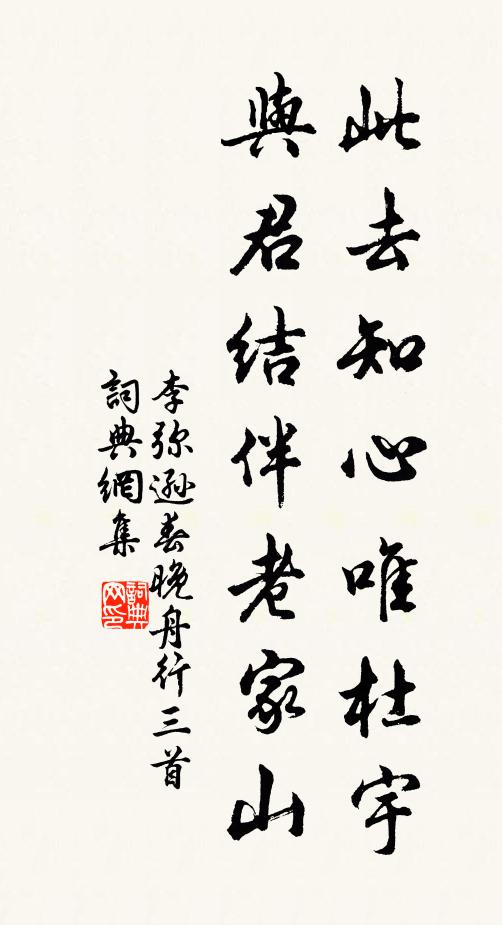 此去知心唯杜宇
與君結伴老家山
李弥遜春晚舟行三首
詞典網集
詞典网印